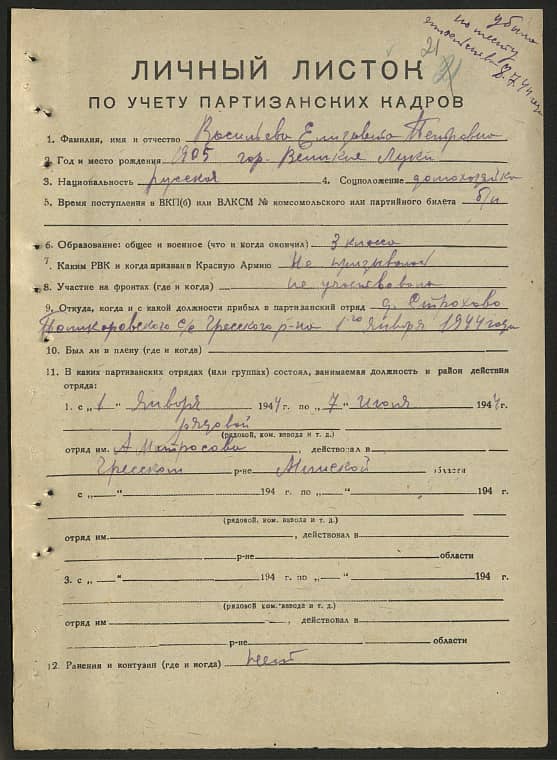 убыла
по месту
жительства
7.7.44 года
21
21
ЛИЧНЫЙ ЛИСТОК
ПО УЧЕТУ ПАРТИЗАНСКИХ КАДРОВ
1. Фамилия, имя и отчество Васильева Елизавета Петровна
2. Год и место рождения 1905 гор. Великие Луки
3. Национальность русская 4. Соцположение домохозяйка
5. Время поступления в ВКП(б) или ВЛКСМ № комсомольского или партийного билета б/п
6. Образование: общее и военное (что и когда окончил) 3 класса
7. Каким РВК и когда призван в Красную Армию Не призывалась
8. Участие на фронтах (где и когда) не участвовала
9. Откуда, когда и с какой должности прибыл в партизанский отряд д. Строхово
с/с Гресского р-на 1го января 1944 года
10. Был ли в плену (где и когда)
11. В каких партизанских отрядах (или группах) состоял, занимаемая должность и район действия
отряда:
1. с „1" Января 1944 г. по „7" Июля 1944 г.
рядовой
(рядовой, ком. взвода и т. д.)
отряд им. А Матросова, действовал в
Гресском р-не Минской области
с „ " 194 г. по „ " 194 г.
(рядовой, ком. взвода и т. д.)
отряд им. , действовал в
р-не области
3. с „ " 194 г. по „ " 194 г.
(рядовой, ком. взвода и т. д.)
отряд им. , действовал в
р-не области
12. Ранения и контузии (где и когда) нет